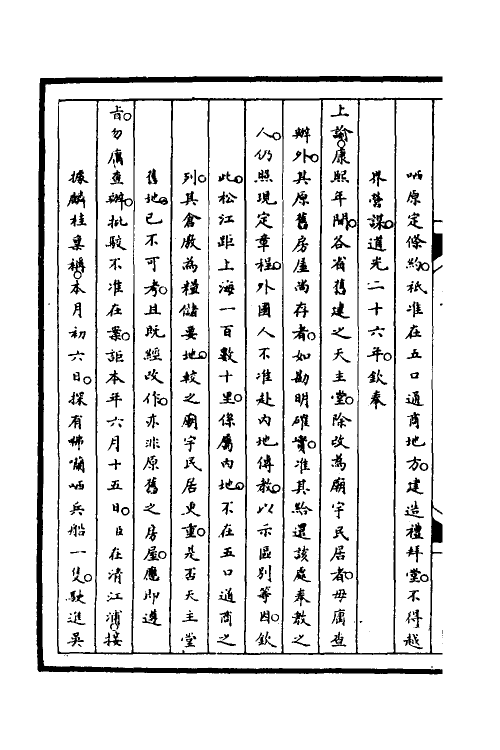 哂原定條約祇准在五口通商地方建造禮拜堂不得越
界營謀道光二十六年欽奉
上諭康熙年間各省舊建之天主堂除改為廟宇民居者毋庸查
辦外其原舊房屋尚存者如勘明確實准其給還該處奉教之
人仍照現定章程外國人不准赴內地傳教以示區別等因欽
此松江距上海一百數十里係屬內地不在五口通商之
列其倉廠為糧儲要地較之廟宇民居更重是否天主堂
舊地已不可考且既經改作亦非原舊之房屋應即遵
旨勿庸查辦批駁不准在案詎本年六月十五日臣在清江浦接
據麟桂稟稱本月初六日探有咈囒哂兵船一隻駛進吳